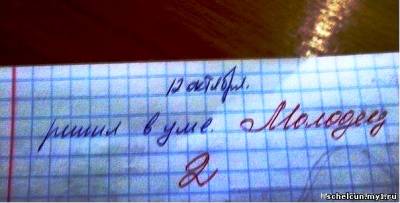 12 октября.
решил в уме. Молодец
2
Hschelcun.my1.ru